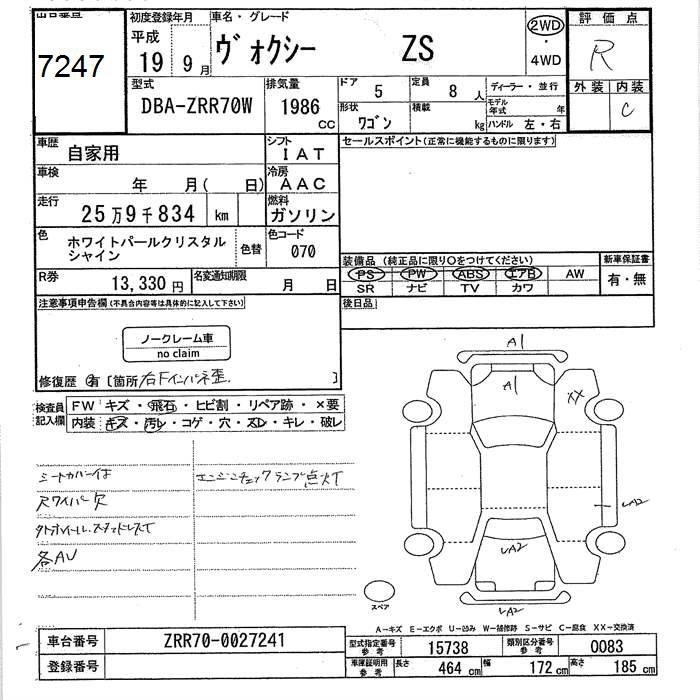 出品番号
7247
初度登録年月
平成
19 9月
車名・グレード
ヴォクシー ZS
2WD
・
4WD
評価点
R
外装 内装
C
型式
DBA-ZRR70W
排気量
1986
cc
ドア
5
定員
8 人
形状
ワゴン
積載
kg
ディーラー・並行
モデル
年式 年
ハンドル 左・右
車歴
自家用
シフト
IAT
車検
年 月( 日)
冷房
AAC
走行
25万9千834 km
燃料
ガソリン
色
ホワイトパールクリスタル
シャイン
色替
色コード
070
R券
13,330円
名変通知期限
月 日
セールスポイント(正常に機能するものに限ります)
装備品(純正品に限り○をつけてください)
PS PW ABS エアB AW
SR ナビ TV カワ
新車保証書
有・無
後日品
注意事項申告欄(不具合内容等は具体的に記入して下さい)
ノークレーム車
no claim
修復歴 有 [箇所 右Fインパネ歪 ]
検査員
記入欄
FW キズ・飛石・ヒビ割・リペア跡・×要
内装 キズ・汚レ・コゲ・穴・スレ・キレ・破レ
シートカバー付
エンジンチェックランプ点灯
Rワイパー欠
タイヤホイール.スタッドレスT
各AU
A1
A1
XX
UA2
UA2
UA2
スペア
A-キズ E-エクボ U-凹み W-補修跡 S-サビ C-腐食 XX-交換済
車台番号
ZRR70-0027241
登録番号
型式指定番号
参考
15738
類別区分番号
参考
0083
車庫証明用
参考
長さ
464 cm
幅
172 cm
高さ
185 cm